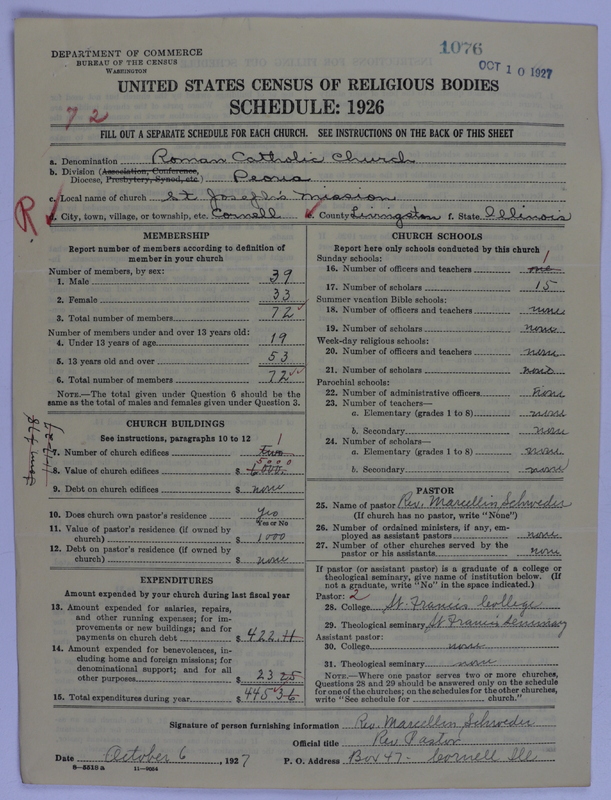 1076
OCT 10 1927
DEPARTMENT OF COMMERCE
BUREAU OF THE CENSUS
WASHINGTON
UNITED STATES CENSUS OF RELIGIOUS BODIES
SCHEDULE: 1926
72
FILL OUT A SEPARATE SCHEDULE FOR EACH CHURCH. SEE INSTRUCTIONS ON THE BACK OF THIS SHEET
a. Denomination Roman Catholic Church
b. Division (Association, Conference,
Diocese, Presbytery, Synod, etc.) Peoria
c. Local name of church St Joseph's Mission
R
d. City, town, village, or township, etc. Cornell e. County Livingston f. State Illinois
MEMBERSHIP
Report number of members according to definition of
member in your church
Number of members, by sex:
1. Male 39
2. Female 33
3. Total number of members 72
Number of members under and over 13 years old:
4. Under 13 years of age 19
5. 13 years old and over 53
6. Total number of members 72
NOTE.—The total given under Question 6 should be the
same as the total of males and females given under Question 3.
CHURCH BUILDINGS
See instructions, paragraphs 10 to 12
7. Number of church edifices two 1
8. Value of church edifices $ 6000. 5000
9. Debt on church edifices $ none
10. Does church own pastor's residence yes
Yes or No
11. Value of pastor's residence (if owned by
church) $ 1000
12. Debt on pastor's residence (if owned by
church) $ none
EXPENDITURES
Amount expended by your church during last fiscal year
13. Amount expended for salaries, repairs,
and other running expenses; for im-
provements or new buildings; and for
payments on church debt $ 422.11
14. Amount expended for benevolences, in-
cluding home and foreign missions; for
denominational support; and for all
other purposes $ 23.25
15. Total expenditures during year $ 445.36
CHURCH SCHOOLS
Report here only schools conducted by this church
Sunday schools:
16. Number of officers and teachers one 1
17. Number of scholars 15
Summer vacation Bible schools:
18. Number of officers and teachers none
19. Number of scholars none
Week-day religious schools:
20. Number of officers and teachers none
21. Number of scholars none
Parochial schools:
22. Number of administrative officers None
23. Number of teachers—
a. Elementary (grades 1 to 8) none
b. Secondary none
24. Number of scholars—
a. Elementary (grades 1 to 8) none
b. Secondary none
PASTOR
25. Name of pastor Rev. Marcellin Schroeder
(If church has no pastor, write "None")
26. Number of ordained ministers, if any, em-
ployed as assistant pastors none
27. Number of other churches served by the
pastor or his assistants none
If pastor (or assistant pastor) is a graduate of a college or
theological seminary, give name of institution below. (If
not a graduate, write "No" in the space indicated.)
Pastor: 2
28. College St. Francis College
29. Theological seminary St Francis Seminary
Assistant pastor:
30. College none
31. Theological seminary none
NOTE.—Where one pastor serves two or more churches,
Questions 28 and 29 should be answered only on the schedule
for one of the churches; on the schedules for the other churches,
write "See schedule for church."
Signature of person furnishing information Rev. Marcellin Schroeder
Official title Rev Pastor
Date October 6, 1927 P. O. Address Box 47- Cornell Ill
8—5518 a 11—9034